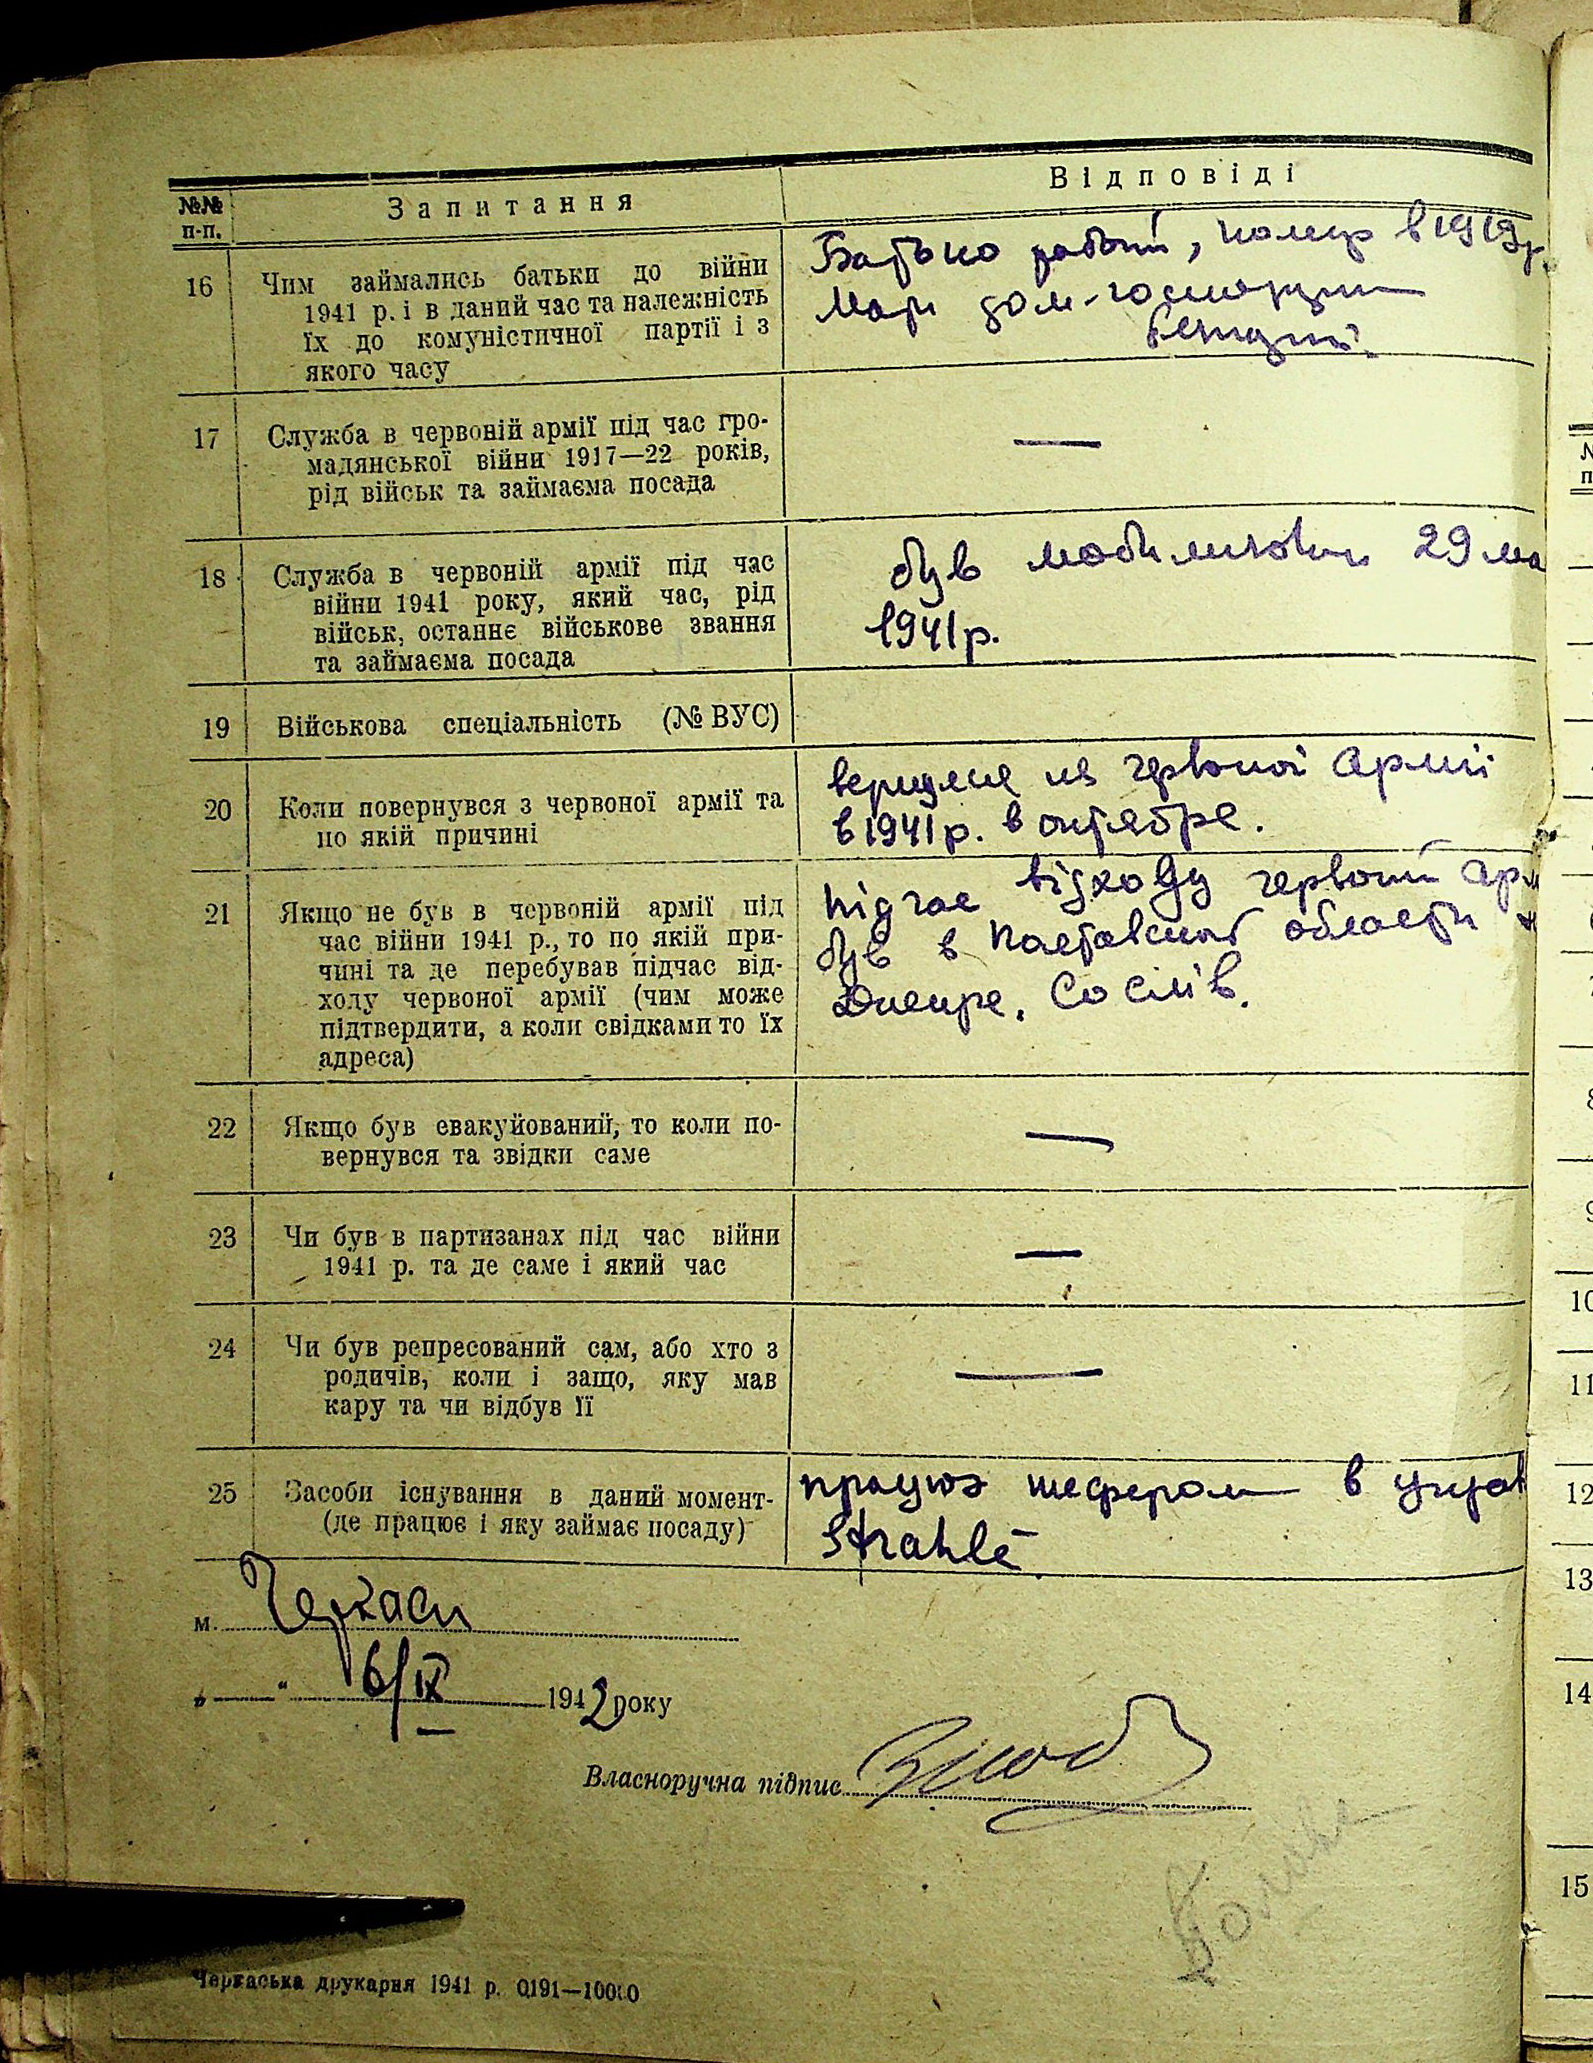 №№ п-п.
Запитання
Відповіді
16
Чим займались батьки до війни
1941 р. і в даний час та належність
їх до комуністичної партії і з
якого часу
Батько робочий, помер в 1919р.
Мати дом-господин
17
Служба в червоній армії під час гро-
мадянської війни 1917—22 років,
рід військ та займаєма посада
—
18
Служба в червоній армії під час
війни 1941 року, який час, рід
військ, останнє військове звання
та займаєма посада
був 29
1941р.
19
Військова спеціальність (№ ВУС)
20
Коли повернувся з червоної армії та
по якій причині
из червоної армії
в 1941р. в октябре.
21
Якщо не був в червоній армії під
час війни 1941 р., то по якій при-
чині та де перебував підчас від-
ходу червоної армії (чим може
підтвердити, а коли свідками то їх
адреса)
підчас відходу червоний Арм
був в Полтавской области
Днепре. Со слів.
22
Якщо був евакуйований, то коли по-
вернувся та звідки саме
—
23
Чи був в партизанах під час війни
1941 р. та де саме і який час
—
24
Чи був репресований сам, або хто з
родичів, коли і защо, яку мав
кару та чи відбув її
—
25
Засоби існування в даний момент
(де працює і яку займає посаду)
працює шофером в
Strahle
м. Черкаси
„ “ 6/IX 1942 року
Власноручна підпис
Черкаська друкарня 1941 р. 0191—10000
№
п
8
9
10
11
12
13
14
15